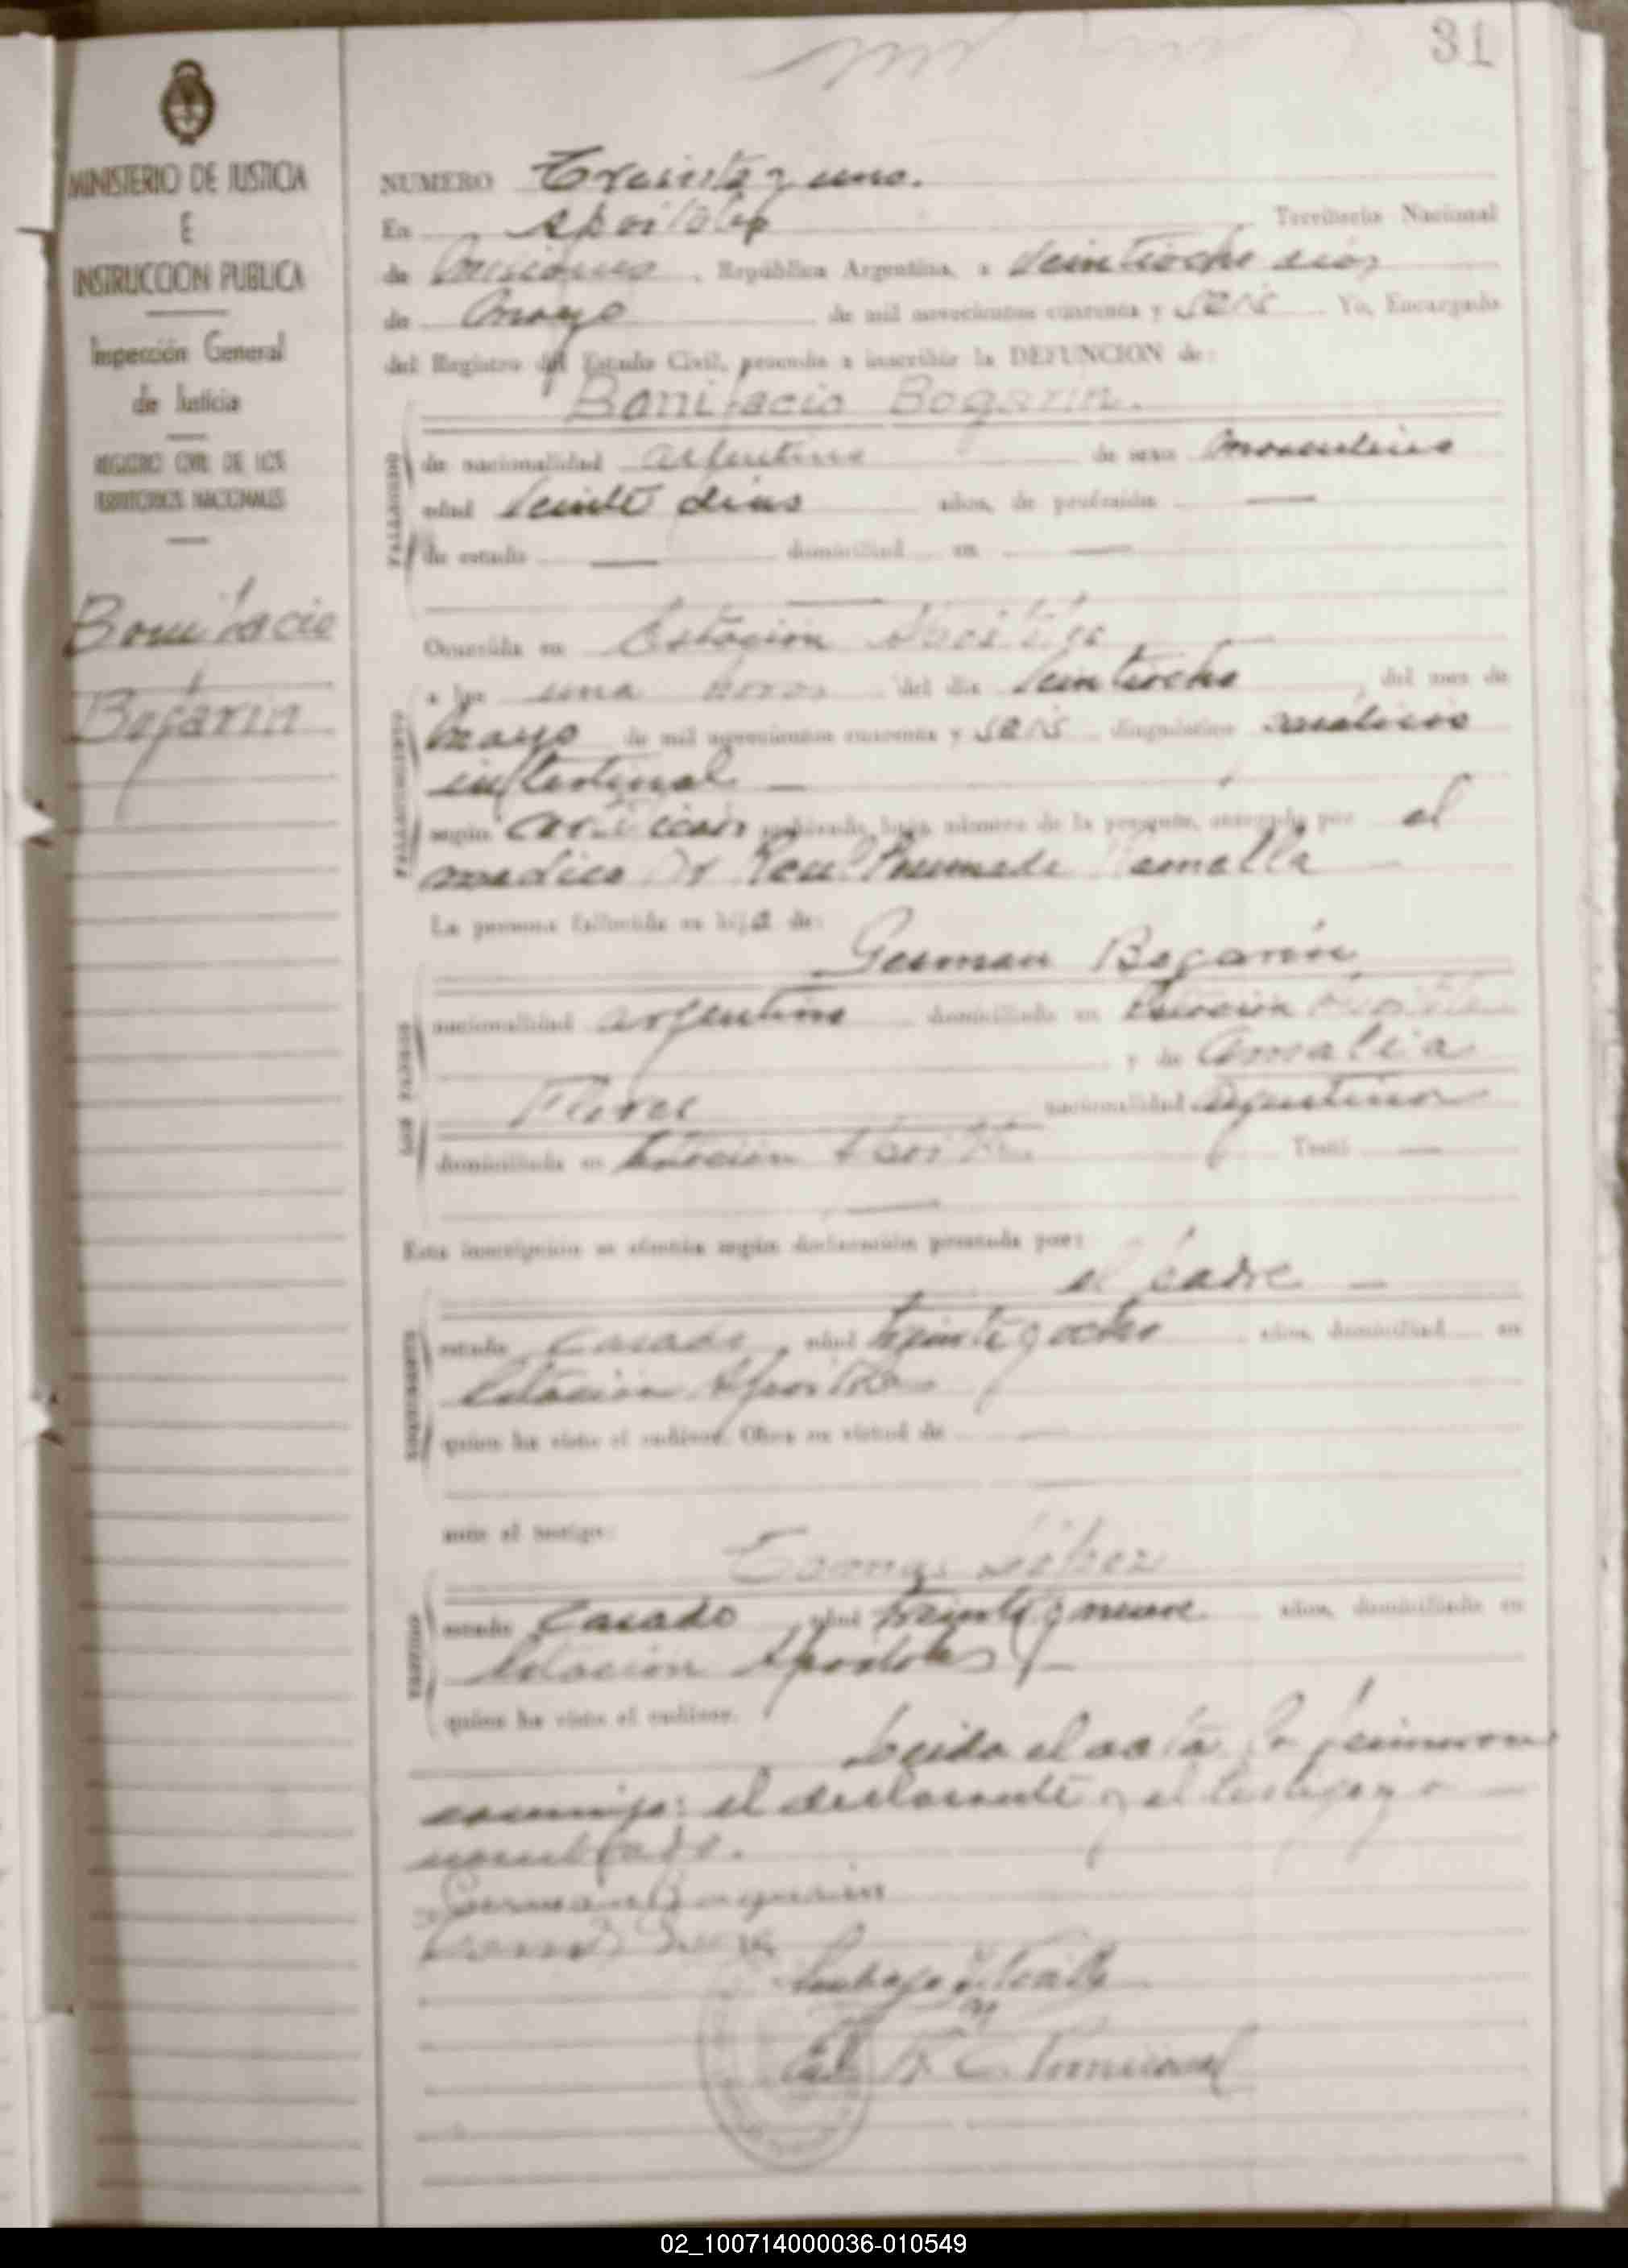 31
MINISTERIO DE JUSTICIA
E
INSTRUCCION PUBLICA
Inspección General
de Justicia
REGISTRO CIVIL DE LOS
TERRITORIOS NACIONALES
Bonifacio
Bogarin
NUMERO Treinta y uno.
En Apostoles Territorio Nacional
de Misiones, República Argentina, a veintiocho dias
de Mayo de mil novecientos cuarenta y seis Yo, Encargado
del Registro del Estado Civil, procedo a inscribir la DEFUNCION de:
Bonifacio Bogarin.
FALLECIDO
de nacionalidad argentino de sexo masculino
edad veinte dias años, de profesión —
de estado — domiciliad en —
FALLECIMIENTO
Ocurrida en Estacion Apostoles
a las una horas del dia veintiocho, del mes de
mayo de mil novecientos cuarenta y seis diagnóstico
intestinal —
según archivado bajo número de la presente, otorgado por el
medico Dr
La persona fallecida es hijo de:
German Bogarin
LOS PADRES
nacionalidad argentino domiciliado en Estacion Apostoles
y de Amalia
Flores nacionalidad argentina
domiciliada en Estacion Apostoles Testó —
Esta inscripción se efectúa según declaración prestada por:
el padre —
DECLARANTE
estado casado, edad treinta y ocho años, domiciliad en
Estacion Apostoles
quien ha visto el cadáver. Obra en virtud de —
ante el testigo:
TESTIGO
estado casado, edad treinta y nueve años, domiciliado en
Estacion Apostoles —
quien ha visto el cadáver.
Leida el acta la firmaron
conmigo: el declarante y el testigo
nombrado.
German Bogarin
02_100714000036-010549